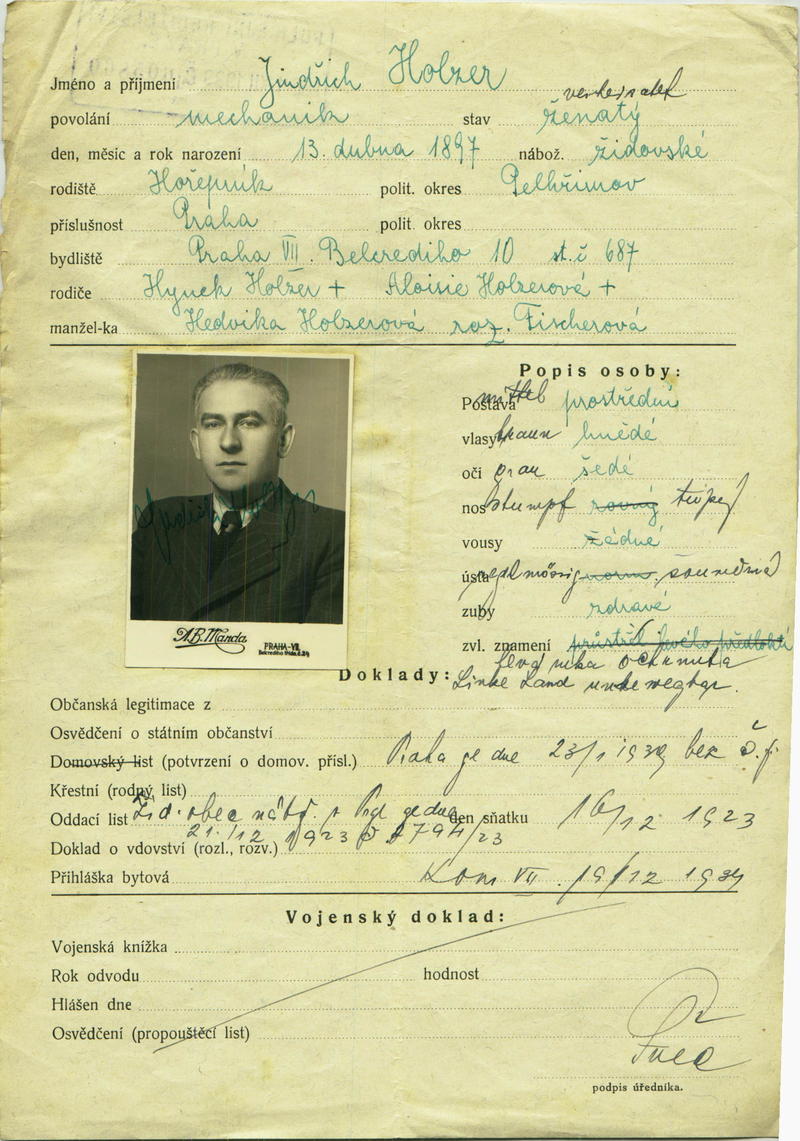 Jméno a příjmení Jindřich Holzer
verheiratet
povolání mechanik stav ženatý
den, měsíc a rok narození 13. dubna 1897 nábož. židovské
rodiště Hořepník polit. okres Pelhřimov
příslušnost Praha polit. okres
bydliště Praha VII. Belcrediho 10 st. č 687
rodiče Hynek Holzer + Aloisie Holzerová +
manžel-ka Hedvika Holzerová roz. Fischerová
Popis osoby:
Postava mittel prostřední
vlasy braun hnědé
oči grau šedé
nos stumpf rovný tupý
vousy žádné
ústa regelmässig norm. souměrná
zuby zdravé
zvl. znamení průstřel levého předloktí
levá ruka ochrnutá
Linke Hand unbewegbar.
Jindřich Holzer
A.B. Manda
PRAHA-VII.
Belcrediho třída č.
Doklady:
Občanská legitimace z
Osvědčení o státním občanství
Domovský list (potvrzení o domov. přísl.) Praha ze dne 23/1 1939 bez č. j.
Křestní (rodný list)
Oddací list Žid. obec nábž. v Praze ze dne den sňatku 16/12 1923
21./12 1923 č 1794/23
Doklad o vdovství (rozl., rozv.)
Přihláška bytová Kom VII. 19/12 1934
Vojenský doklad:
Vojenská knížka
Rok odvodu hodnost
Hlášen dne
Osvědčení (propouštěcí list)
podpis úředníka.